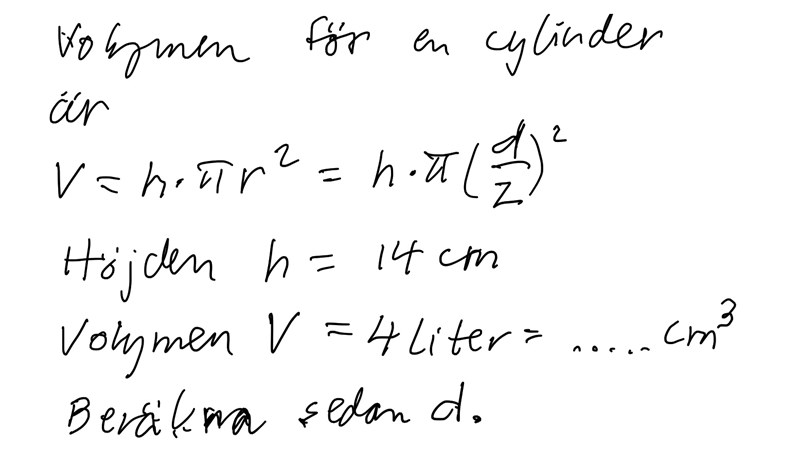 Volymen för en cylinder
är
V = h · πr² = h · π(d/2)²
Höjden h = 14 cm
Volymen V = 4 liter = ..... cm³
Beräkna sedan d.